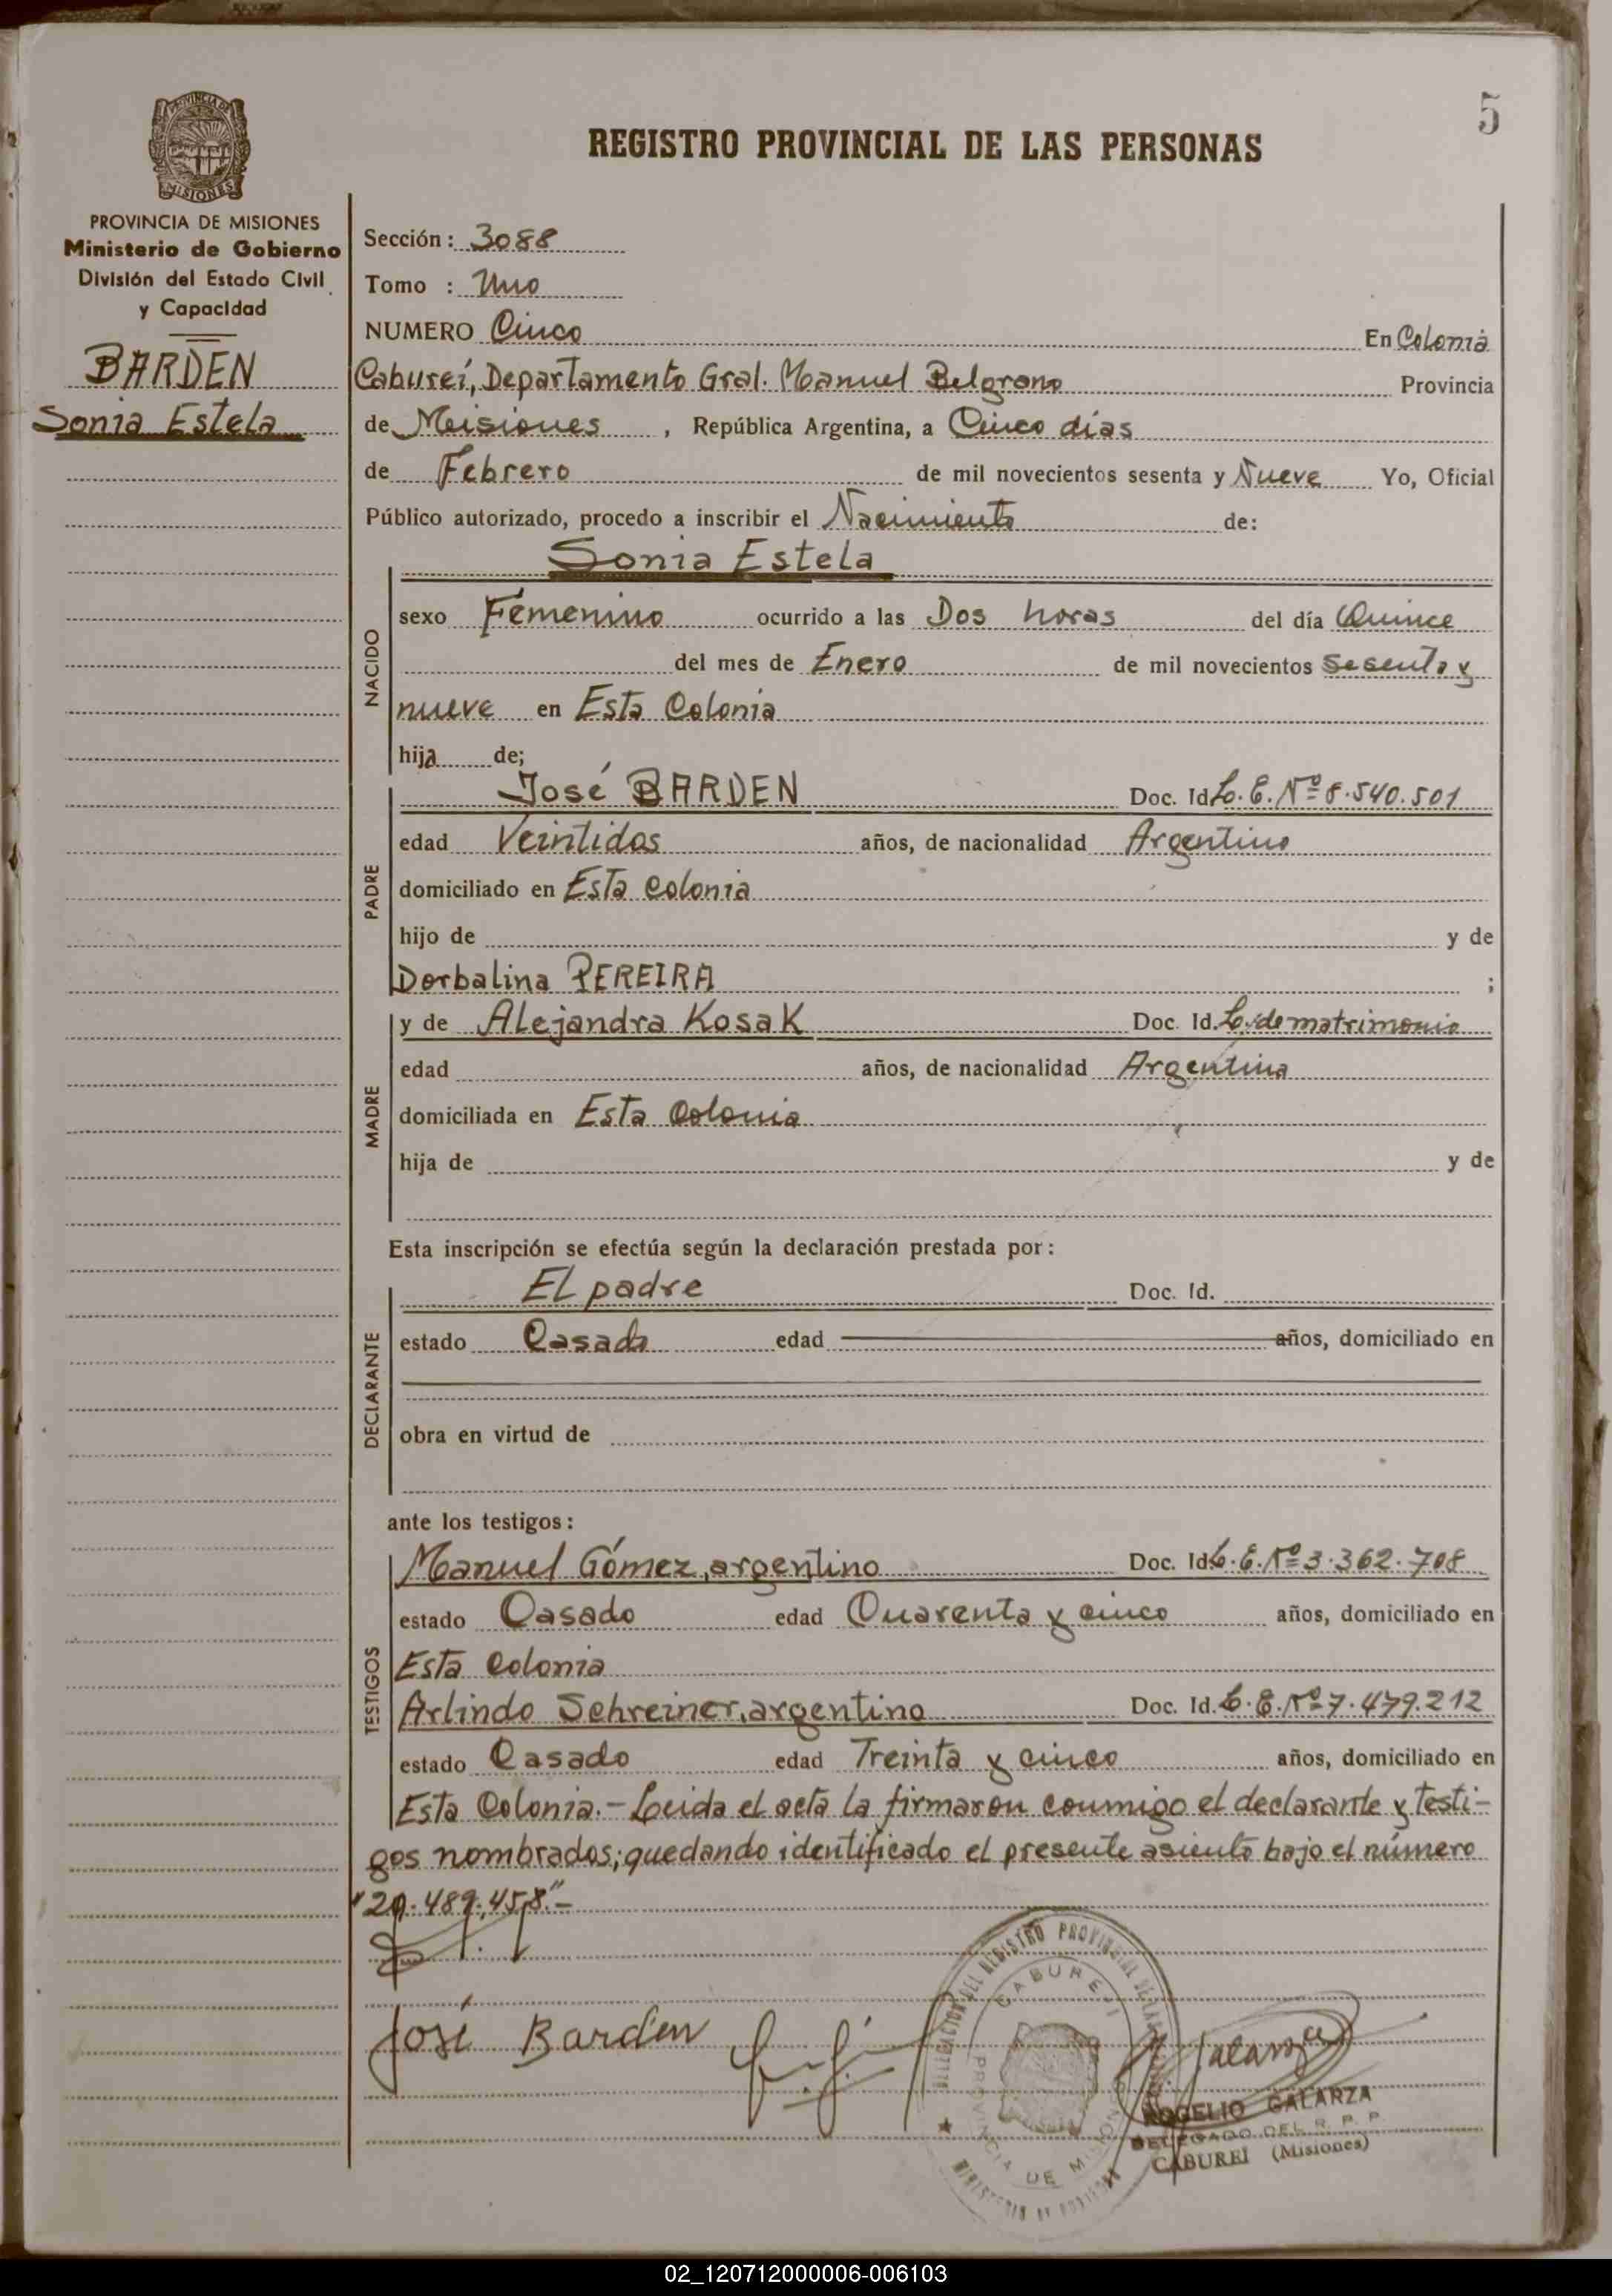 5
REGISTRO PROVINCIAL DE LAS PERSONAS
PROVINCIA DE MISIONES
PROVINCIA DE MISIONES
Ministerio de Gobierno
División del Estado Civil
y Capacidad
BARDEN
Sonia Estela
Sección: 3088
Tomo : Uno
NUMERO Cinco En Colonia
Cabureí, Departamento Gral. Manuel Belgrano Provincia
de Misiones, República Argentina, a Cinco días
de Febrero de mil novecientos sesenta y Nueve Yo, Oficial
Público autorizado, procedo a inscribir el Nacimiento de:
Sonia Estela
NACIDO
sexo Femenino ocurrido a las Dos horas del día Quince
del mes de Enero de mil novecientos sesenta y
nueve en Esta Colonia
hija de;
PADRE
José BARDEN Doc. Id L. E. Nº 8.540.501
edad Veintidos años, de nacionalidad Argentino
domiciliado en Esta colonia
hijo de y de
Dorbalina PEREIRA ;
MADRE
y de Alejandra Kosak Doc. Id. L. de matrimonio
edad años, de nacionalidad Argentina
domiciliada en Esta Colonia
hija de y de
Esta inscripción se efectúa según la declaración prestada por:
DECLARANTE
El padre Doc. Id.
estado Casado edad años, domiciliado en
obra en virtud de
ante los testigos:
TESTIGOS
Manuel Gómez, argentino Doc. Id L. E. Nº 3.362.708
estado Casado edad Cuarenta y cinco años, domiciliado en
Esta colonia
Arlindo Schreiner, argentino Doc. Id. L. E. Nº 7.479.212
estado Casado edad Treinta y cinco años, domiciliado en
Esta Colonia.- Leida el acta la firmaron conmigo el declarante y testi-
gos nombrados; quedando identificado el presente asiento bajo el número
"20.489.458."-
José Barden
Galarza
DELEGACION DEL REGISTRO PROVINCIAL DE LAS
CABUREI
PROVINCIA DE MISIONES
MINISTERIO DE GOBIERNO
ROGELIO GALARZA
DELEGADO DEL R. P. P.
CABUREI (Misiones)
02_120712000006-006103